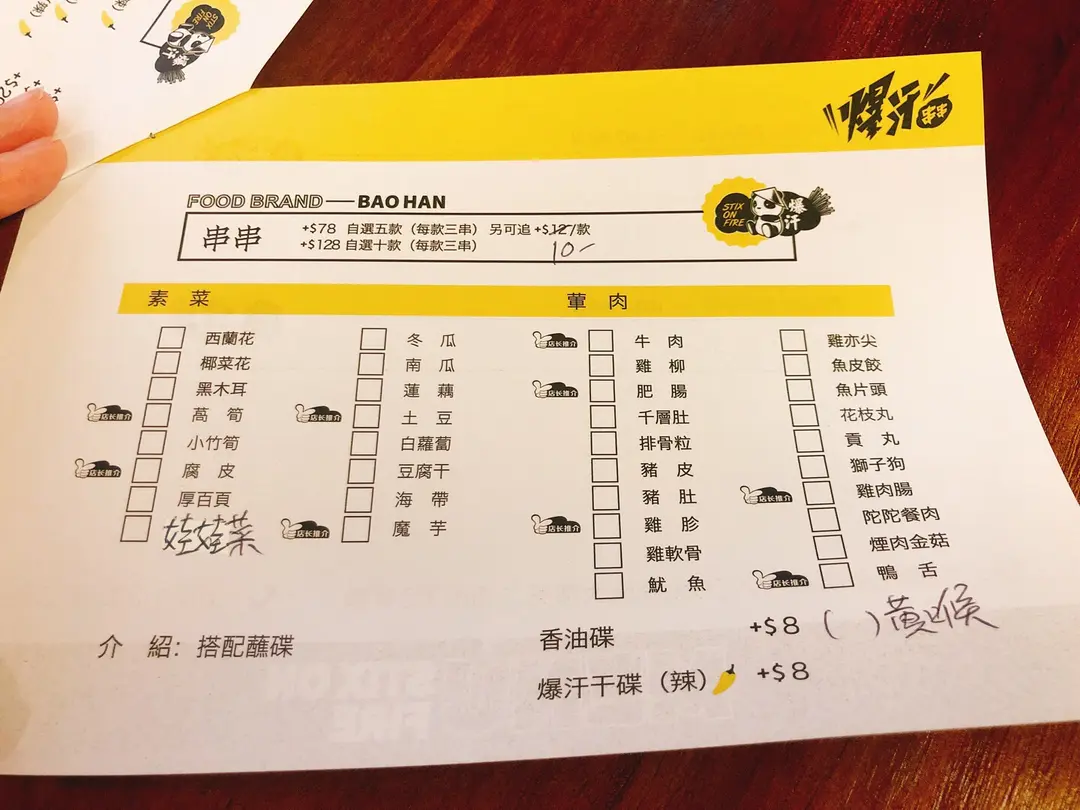 爆汗串串
FOOD BRAND — BAO HAN
STIX ON FIRE
爆汗
串串
+$78 自選五款（每款三串） 另可追 +$12/款
+$128 自選十款（每款三串）
10-
素 菜
葷 肉
西蘭花
椰菜花
黑木耳
店长推介 萵 筍
小竹筍
店长推介 腐 皮
厚百頁
娃娃菜
冬 瓜
南 瓜
蓮 藕
店长推介 土 豆
白蘿蔔
豆腐干
海 帶
店长推介 魔 芋
店长推介 牛 肉
雞 柳
店长推介 肥 腸
千層肚
排骨粒
豬 皮
豬 肚
店长推介 雞 胗
雞軟骨
魷 魚
雞亦尖
魚皮餃
魚片頭
花枝丸
貢 丸
獅子狗
店长推介 雞肉腸
陀陀餐肉
煙肉金菇
店长推介 鴨 舌
介 紹：搭配蘸碟
香油碟 +$8
( ) 黃喉
爆汗干碟（辣） +$8